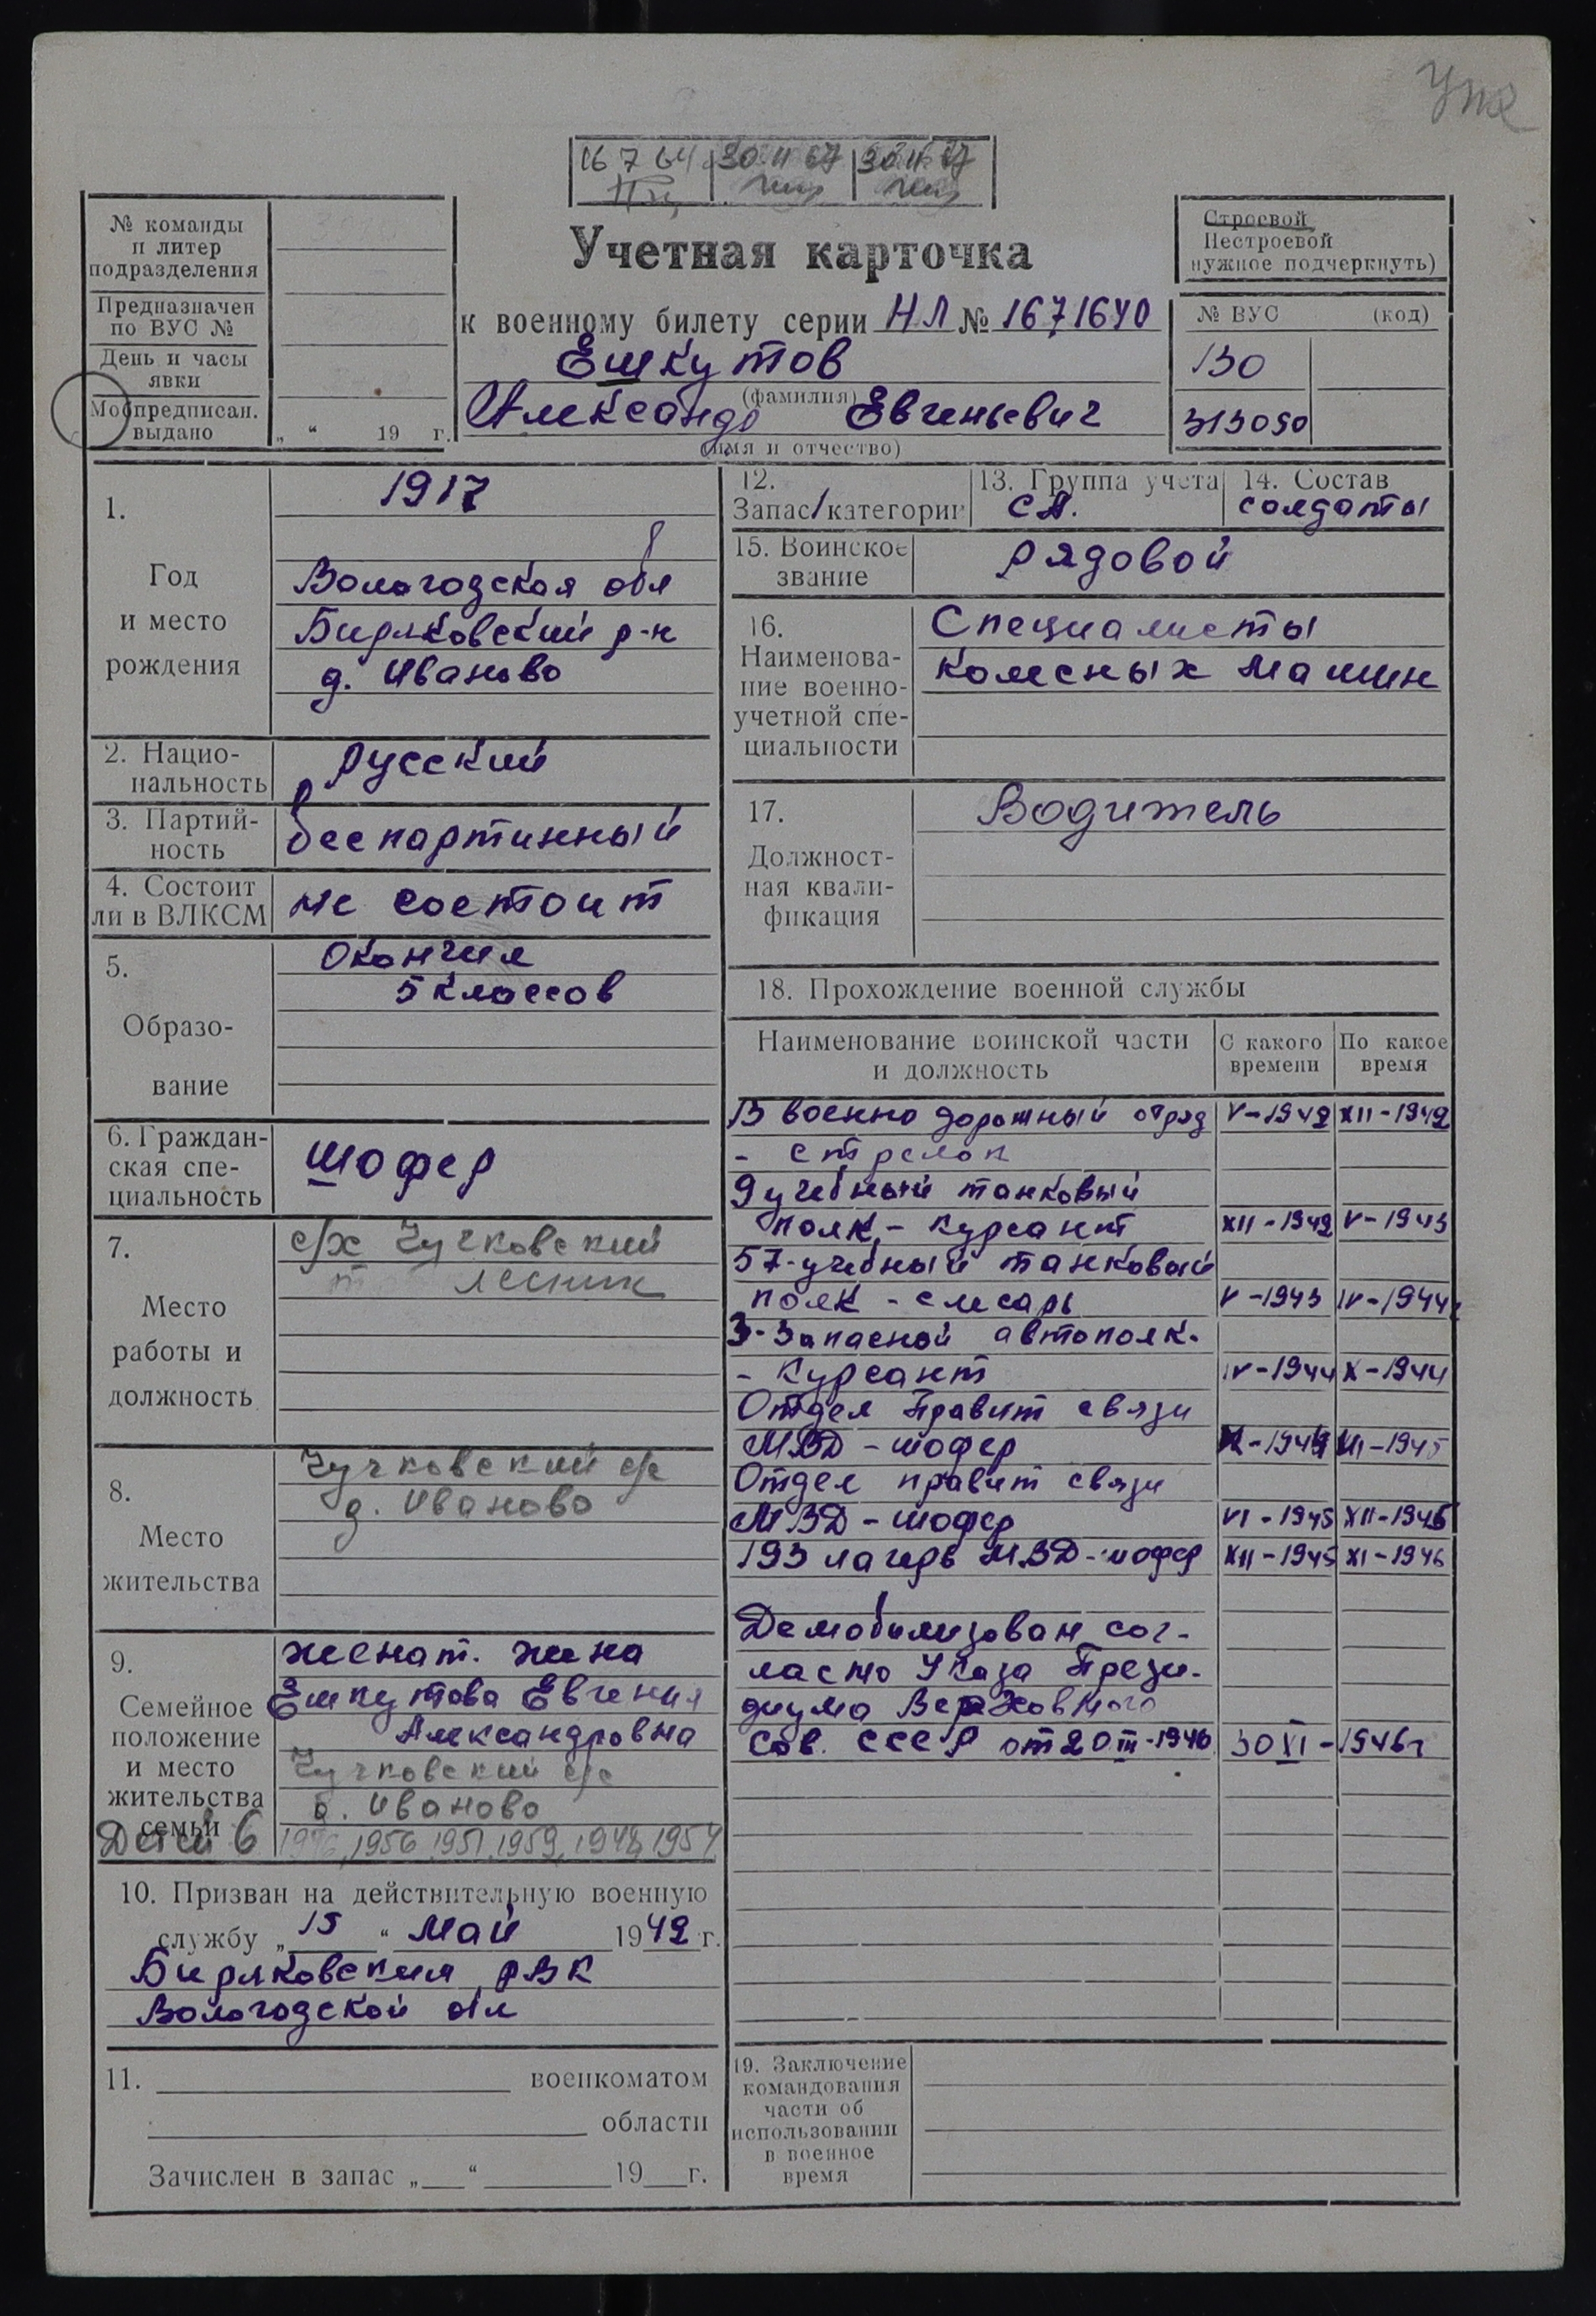 16 7 64 30 11 67 30 11 67
№ команды
и литер
подразделения
Предназначен
по ВУС №
День и часы
явки
Мобпредписан.
выдано
„ “ 19 г.
Учетная карточка
к военному билету серии НЛ № 1671640
Ешкутов
(фамилия)
Александр Евгеньевич
(имя и отчество)
Строевой
Нестроевой
нужное подчеркнуть)
№ ВУС (код)
130
313050
1.
Год
и место
рождения
1917
Вологодская обл
Биряковский р-н
д. Иваново
2. Нацио-
нальность
русский
3. Партий-
ность
беспартинный
4. Состоит
ли в ВЛКСМ
не состоит
5.
Образо-
вание
Окончил
5 классов
6. Граждан-
ская спе-
циальность
шофер
7.
Место
работы и
должность
с/х Чучковский
лесник
8.
Место
жительства
Чучковский с/с
д. Иваново
9.
Семейное
положение
и место
жительства
семьи
женат. жена
Ешкутова Евгения
Александровна
Чучковский с/с
д. Иваново
Детей 6
1956, 1951, 1959, 1948, 1954
10. Призван на действительную военную
службу „ 15 “ Май 1942 г.
Биряковским РВК
Вологодской обл
11. военкоматом
области
Зачислен в запас „ “ 19 г.
12.
Запас/категории
13. Группа учета
СА.
14. Состав
солдаты
15. Воинское
звание
рядовой
16.
Наименова-
ние военно-
учетной спе-
циальности
Специалисты
колесных машин
17.
Должност-
ная квали-
фикация
Водитель
18. Прохождение военной службы
Наименование воинской части
и должность
С какого
времени
По какое
время
В военно дорожный отряд V-1942 XII-1942
- стрелок
9 учебный танковый
полк - курсант XII-1942 V-1943
57-учебный танковый
полк - слесарь V-1943 IV-1944
3-запасной автополк-
- курсант IV-1944 X-1944
Отдел Правит связи
МВД - шофер X-1944 VI-1945
Отдел правит связи
МВД - шофер VI-1945 XII-1945
193 лагерь МВД - шофер XII-1945 XI-1946
Демобилизован сог-
ласно Указа Прези-
диума Верховного
Сов. СССР от 20 III-1946 30 XI-1946г
19. Заключение
командования
части об
использовании
в военное
время